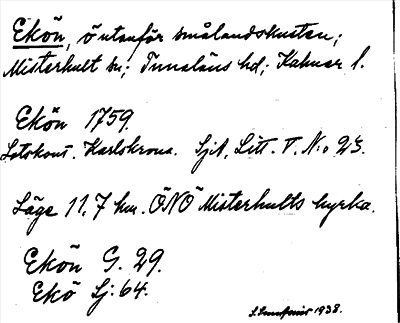 Ekön, ö utanför smålandskusten;
Misterhult sn; Tunaläns hd; Kalmar l.
Ekön 1759.
Lotskont. Karlskrona. Sjö. Litt. V. N:o 23.
Läge 11,7 km. ÖNÖ Misterhults kyrka.
Ekön G. 29.
Ekö Sj: 64.
1938.